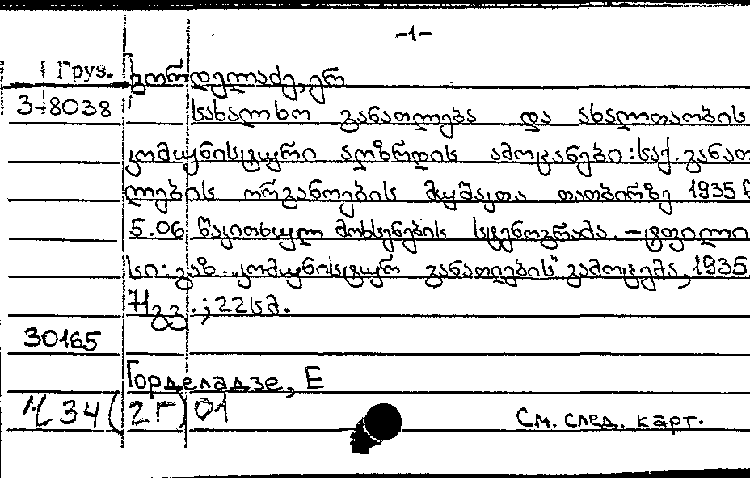 -1-
Груз. გორდელაძე, ერ
3-8038 სახალხო განათლება და ახალთაობის
კომუნისტური აღზრდის ამოცანები: საქ. განათ
ლების ორგანოების მუშაკთა თათბირზე 1935 წ
5.06 წაკითხულ მოხსენების სტენოგრამა. — ტფილი
სი: გაზ. „კომუნისტურ განათლების" გამოცემა, 1935
71 გვ.; 22 სმ.
30165
Горделадзе, Е
Ч34(2Г)01
См. след. карт.